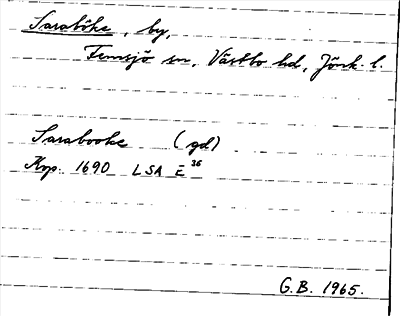 Saraböke, by,
Femsjö sn, Västbo hd, Jönk. l.
Sarabooke (gd)
Kop. 1690 LSA E 36
G.B. 1965.